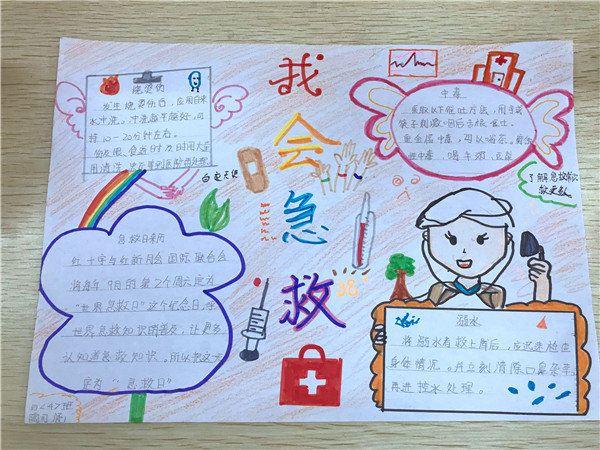 我
会
急
救
烧烫伤
发生烧烫伤后，应用自来
水冲洗。冲洗越早越好，可
持10－20分钟左右。
用清洗
白色天使
中毒
采取以下催吐方法，用手或
筷子刺激咽后去根催吐。
重金属中毒，可以喝茶。
性中毒，喝牛奶
了解急救知识
救更多
急救日来历
红十字与红新月会国际联合会
将每年9月的第2个周六定为
“世界急救日”这个纪念日，呼
世界急救知识的普及，让更多
认知道急救知识。所以把这天
定为“急救日”
溺水
将溺水者救上岸后，应迅速检查
身体情况。并立刻清除口鼻杂草
再进控水处理。
四〈4〉班